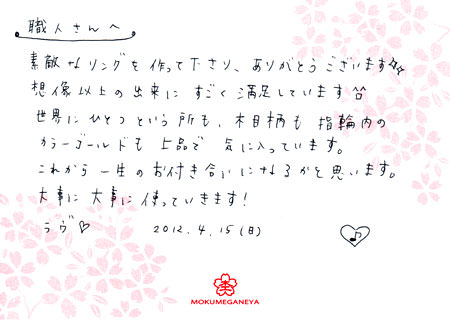 職人さんへ
素敵なリングを作って下さり、ありがとうございます☆☆
想像以上の出来に すごく満足しています^^
世界にひとつという所も、木目柄も 指輪内の
カラーゴールドも 上品で 気に入っています。
これから一生のお付き合いになるかと思います。
大事に大事に使っていきます!
ラヴ♡ 2012.4.15(日) ♪
MOKUMEGANEYA